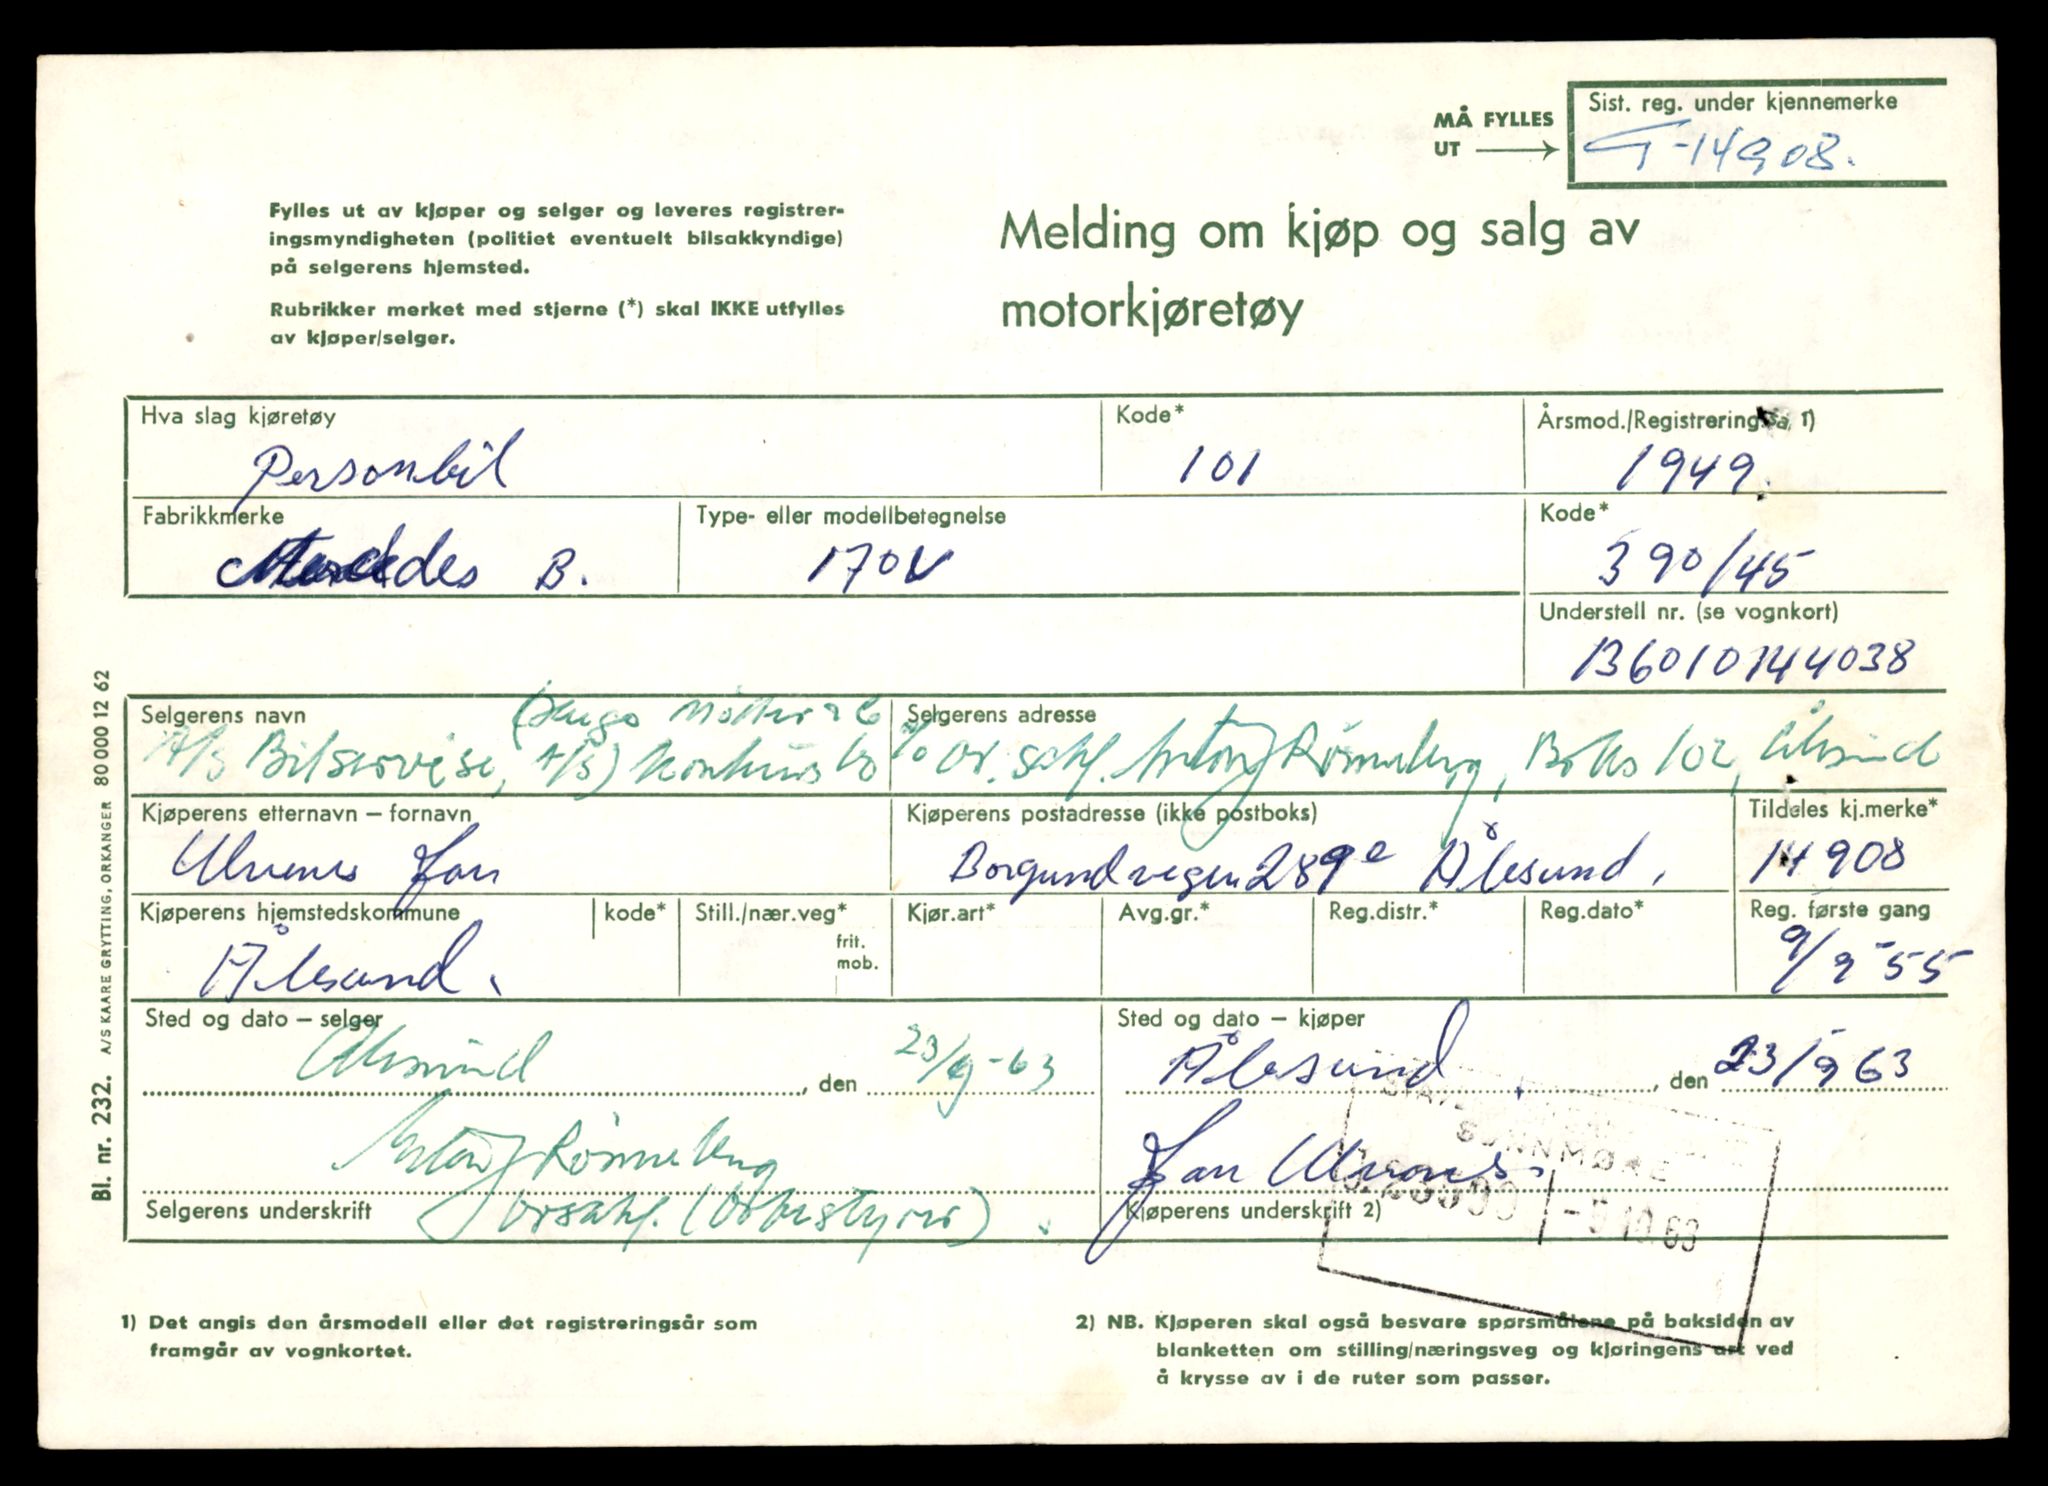 MÅ FYLLES
UT
Sist. reg. under kjennemerke
T-14908.
Fylles ut av kjøper og selger og leveres registrer-
ingsmyndigheten (politiet eventuelt bilsakkyndige)
på selgerens hjemsted.
Rubrikker merket med stjerne (*) skal IKKE utfylles
av kjøper/selger.
Melding om kjøp og salg av
motorkjøretøy
Hva slag kjøretøy
Personbil
Kode*
101
Årsmod./Registrerings 1)
1949.
Fabrikkmerke
Mercedes B.
Type- eller modellbetegnelse
170V
Kode*
390/45
Understell nr. (se vognkort)
136010144038
Selgerens navn
A/S Bilservise, A/S) konkursbo
Selgerens adresse
c/o Or. sakf. Anton Rønneberg, Boks 102, Ålesund
Kjøperens etternavn – fornavn
Ulvenes Jan
Kjøperens postadresse (ikke postboks)
Borgundvegen 289e Ålesund.
Tildeles kj.merke*
14908
Kjøperens hjemstedskommune
Ålesund.
kode*
Still./nær.veg*
frit.
mob.
Kjør.art*
Avg.gr.*
Reg.distr.*
Reg.dato*
Reg. første gang
9/9 55
Sted og dato – selger
Ålesund, den 23/9-63
Sted og dato – kjøper
Ålesund, den 23/9 63
Anton Rønneberg
Orsakf. (Bobestyrer)
Selgerens underskrift
Jan Ulvenes
Kjøperens underskrift 2)
SUNNMØRE
-9 10.63
1) Det angis den årsmodell eller det registreringsår som
framgår av vognkortet.
2) NB. Kjøperen skal også besvare spørsmålene på baksiden av
blanketten om stilling/næringsveg og kjøringens art ved
å krysse av i de ruter som passer.
Bl. nr. 232. A/S KAARE GRYTTING, ORKANGER 80 000 12 62